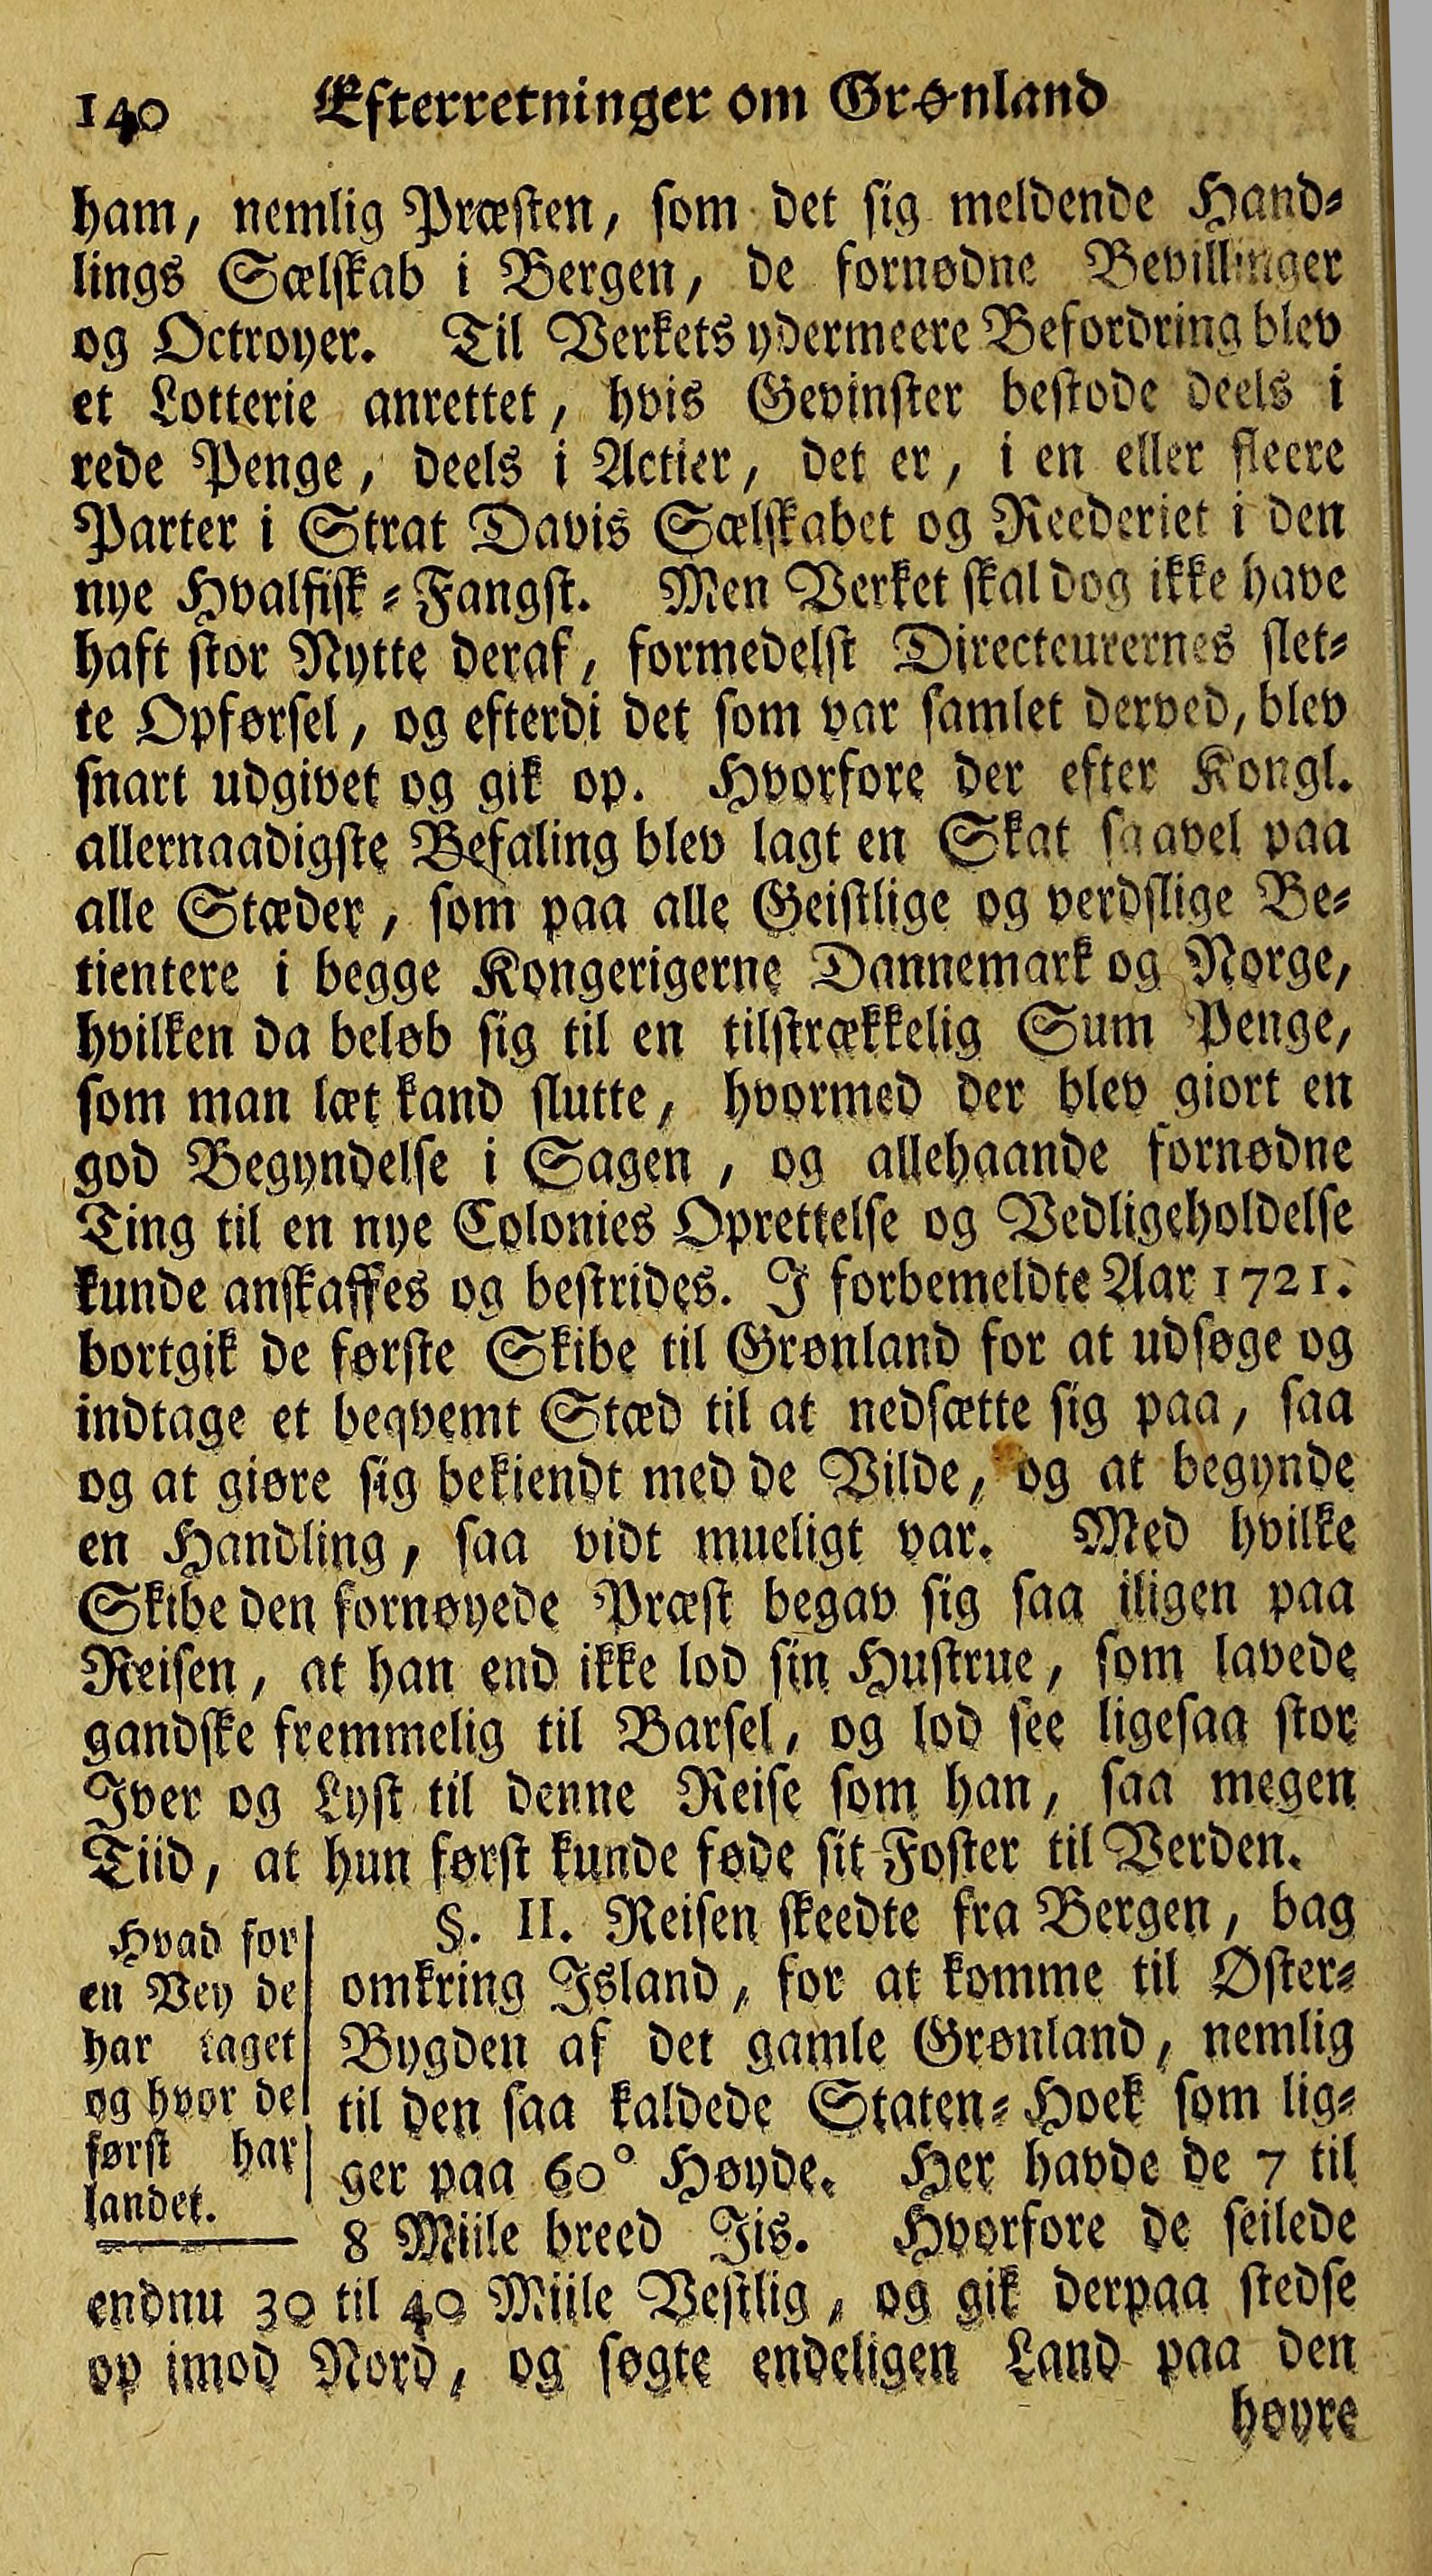 140 Efterretninger om Grønland
ham, nemlig Præsten, som det sig meldende Hand-
lings Sælskab i Bergen, de fornødne Bevillinger
og Octroyer. Til Verkets ydermeere Befordring blev
et Lotterie anrettet, hvis Gevinster bestode deels i
rede Penge, deels i Actier, det er, i en eller fleere
Parter i Strat Davis Sælskabet og Reederiet i den
nye Hvalfisk-Fangst. Men Verket skal dog ikke have
haft stor Nytte deraf, formedelst Directeurernes slet-
te Opførsel, og efterdi det som var samlet derved, blev
snart udgivet og gik op. Hvorfore der efter Kongl.
allernaadigste Befaling blev lagt en Skat saavel paa
alle Stæder, som paa alle Geistlige og verdslige Be-
tientere i begge Kongerigerne Dannemark og Norge,
hvilken da beløb sig til en tilstrækkelig Sum Penge,
som man læt kand slutte, hvormed der blev giort en
god Begyndelse i Sagen, og allehaande fornødne
Ting til en nye Colonies Oprettelse og Vedligeholdelse
kunde anskaffes og bestrides. I forbemeldte Aar 1721.
bortgik de første Skibe til Grønland for at udsøge og
indtage et beqvemt Stæd til at nedsætte sig paa, saa
og at giøre sig bekiendt med de Vilde, og at begynde
en Handling, saa vidt mueligt var. Med hvilke
Skibe den fornøyede Præst begav sig saa iligen paa
Reisen, at han end ikke lod sin Hustrue, som lavede
gandske fremmelig til Barsel, og lod see ligesaa stor
Iver og Lyst til denne Reise som han, saa megen
Tiid, at hun først kunde føde sit Foster til Verden.
Hvad for
en Vey de
har taget
og hvor de
først har
landet.
§. II. Reisen skeedte fra Bergen, bag
omkring Island, for at komme til Øster-
Bygden af det gamle Grønland, nemlig
til den saa kaldede Staten-Hoek som lig-
ger paa 60° Høyde. Her havde de 7 til
8 Miile breed Iis. Hvorfore de seilede
endnu 30 til 40 Miile Vestlig, og gik derpaa stedse
op imod Nord, og søgte endeligen Land paa den
høyre